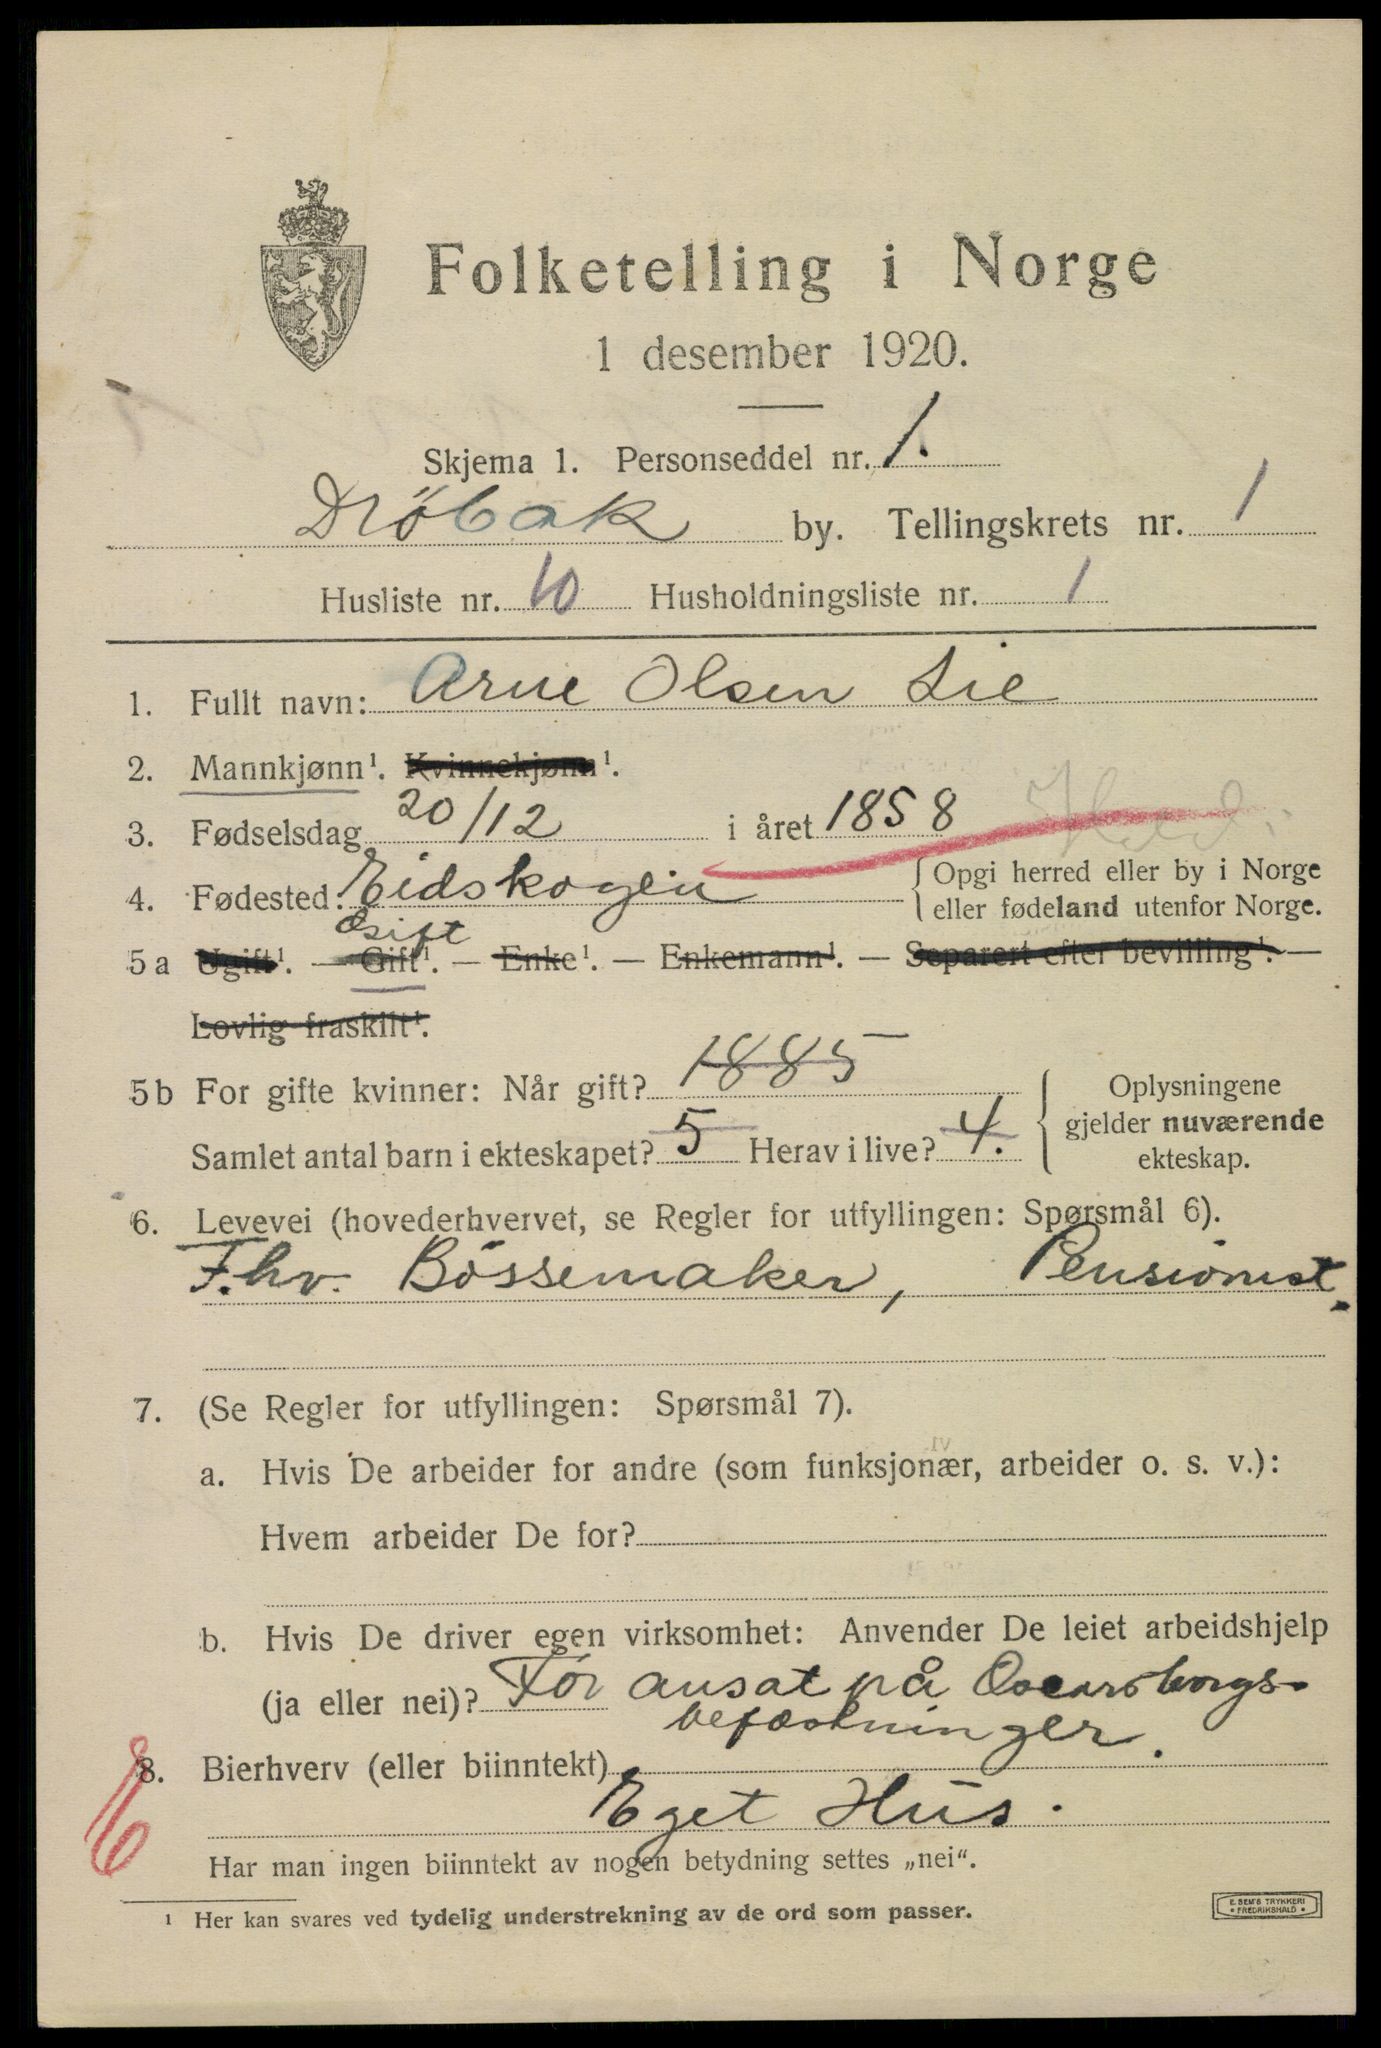 Folketelling i Norge
1 desember 1920.
Skjema 1. Personseddel nr. 1.
Dröbak by. Tellingskrets nr. 1
Husliste nr. 10 Husholdningsliste nr. 1
1. Fullt navn: Arne Olsen Lie
2. Mannkjønn¹. Kvinnekjønn¹.
3. Fødselsdag 20/12 i året 1858 Hed.
4. Fødested: Eidskogen { Opgi herred eller by i Norge
eller fødeland utenfor Norge.
Gift
5a Ugift¹. — Gift¹. — Enke¹. — Enkemann¹. — Separert efter bevilling¹. —
Lovlig fraskilt¹.
5b For gifte kvinner: Når gift? 1885
Samlet antal barn i ekteskapet? 5 Herav i live? 4.
Oplysningene
gjelder nuværende
ekteskap.
6. Levevei (hovederhvervet, se Regler for utfyllingen: Spørsmål 6).
F.hv. Bössemaker, Pensionist.
7. (Se Regler for utfyllingen: Spørsmål 7).
a. Hvis De arbeider for andre (som funksjonær, arbeider o. s. v.):
Hvem arbeider De for?
b. Hvis De driver egen virksomhet: Anvender De leiet arbeidshjelp
(ja eller nei)? Før ansat på Oscarsborgs-
befæstninger.
8. Bierhverv (eller biinntekt)
Eget Hus.
Har man ingen biinntekt av nogen betydning settes „nei“.
¹ Her kan svares ved tydelig understrekning av de ord som passer.
E. SEM'S TRYKKERI
• FREDRIKSHALD •